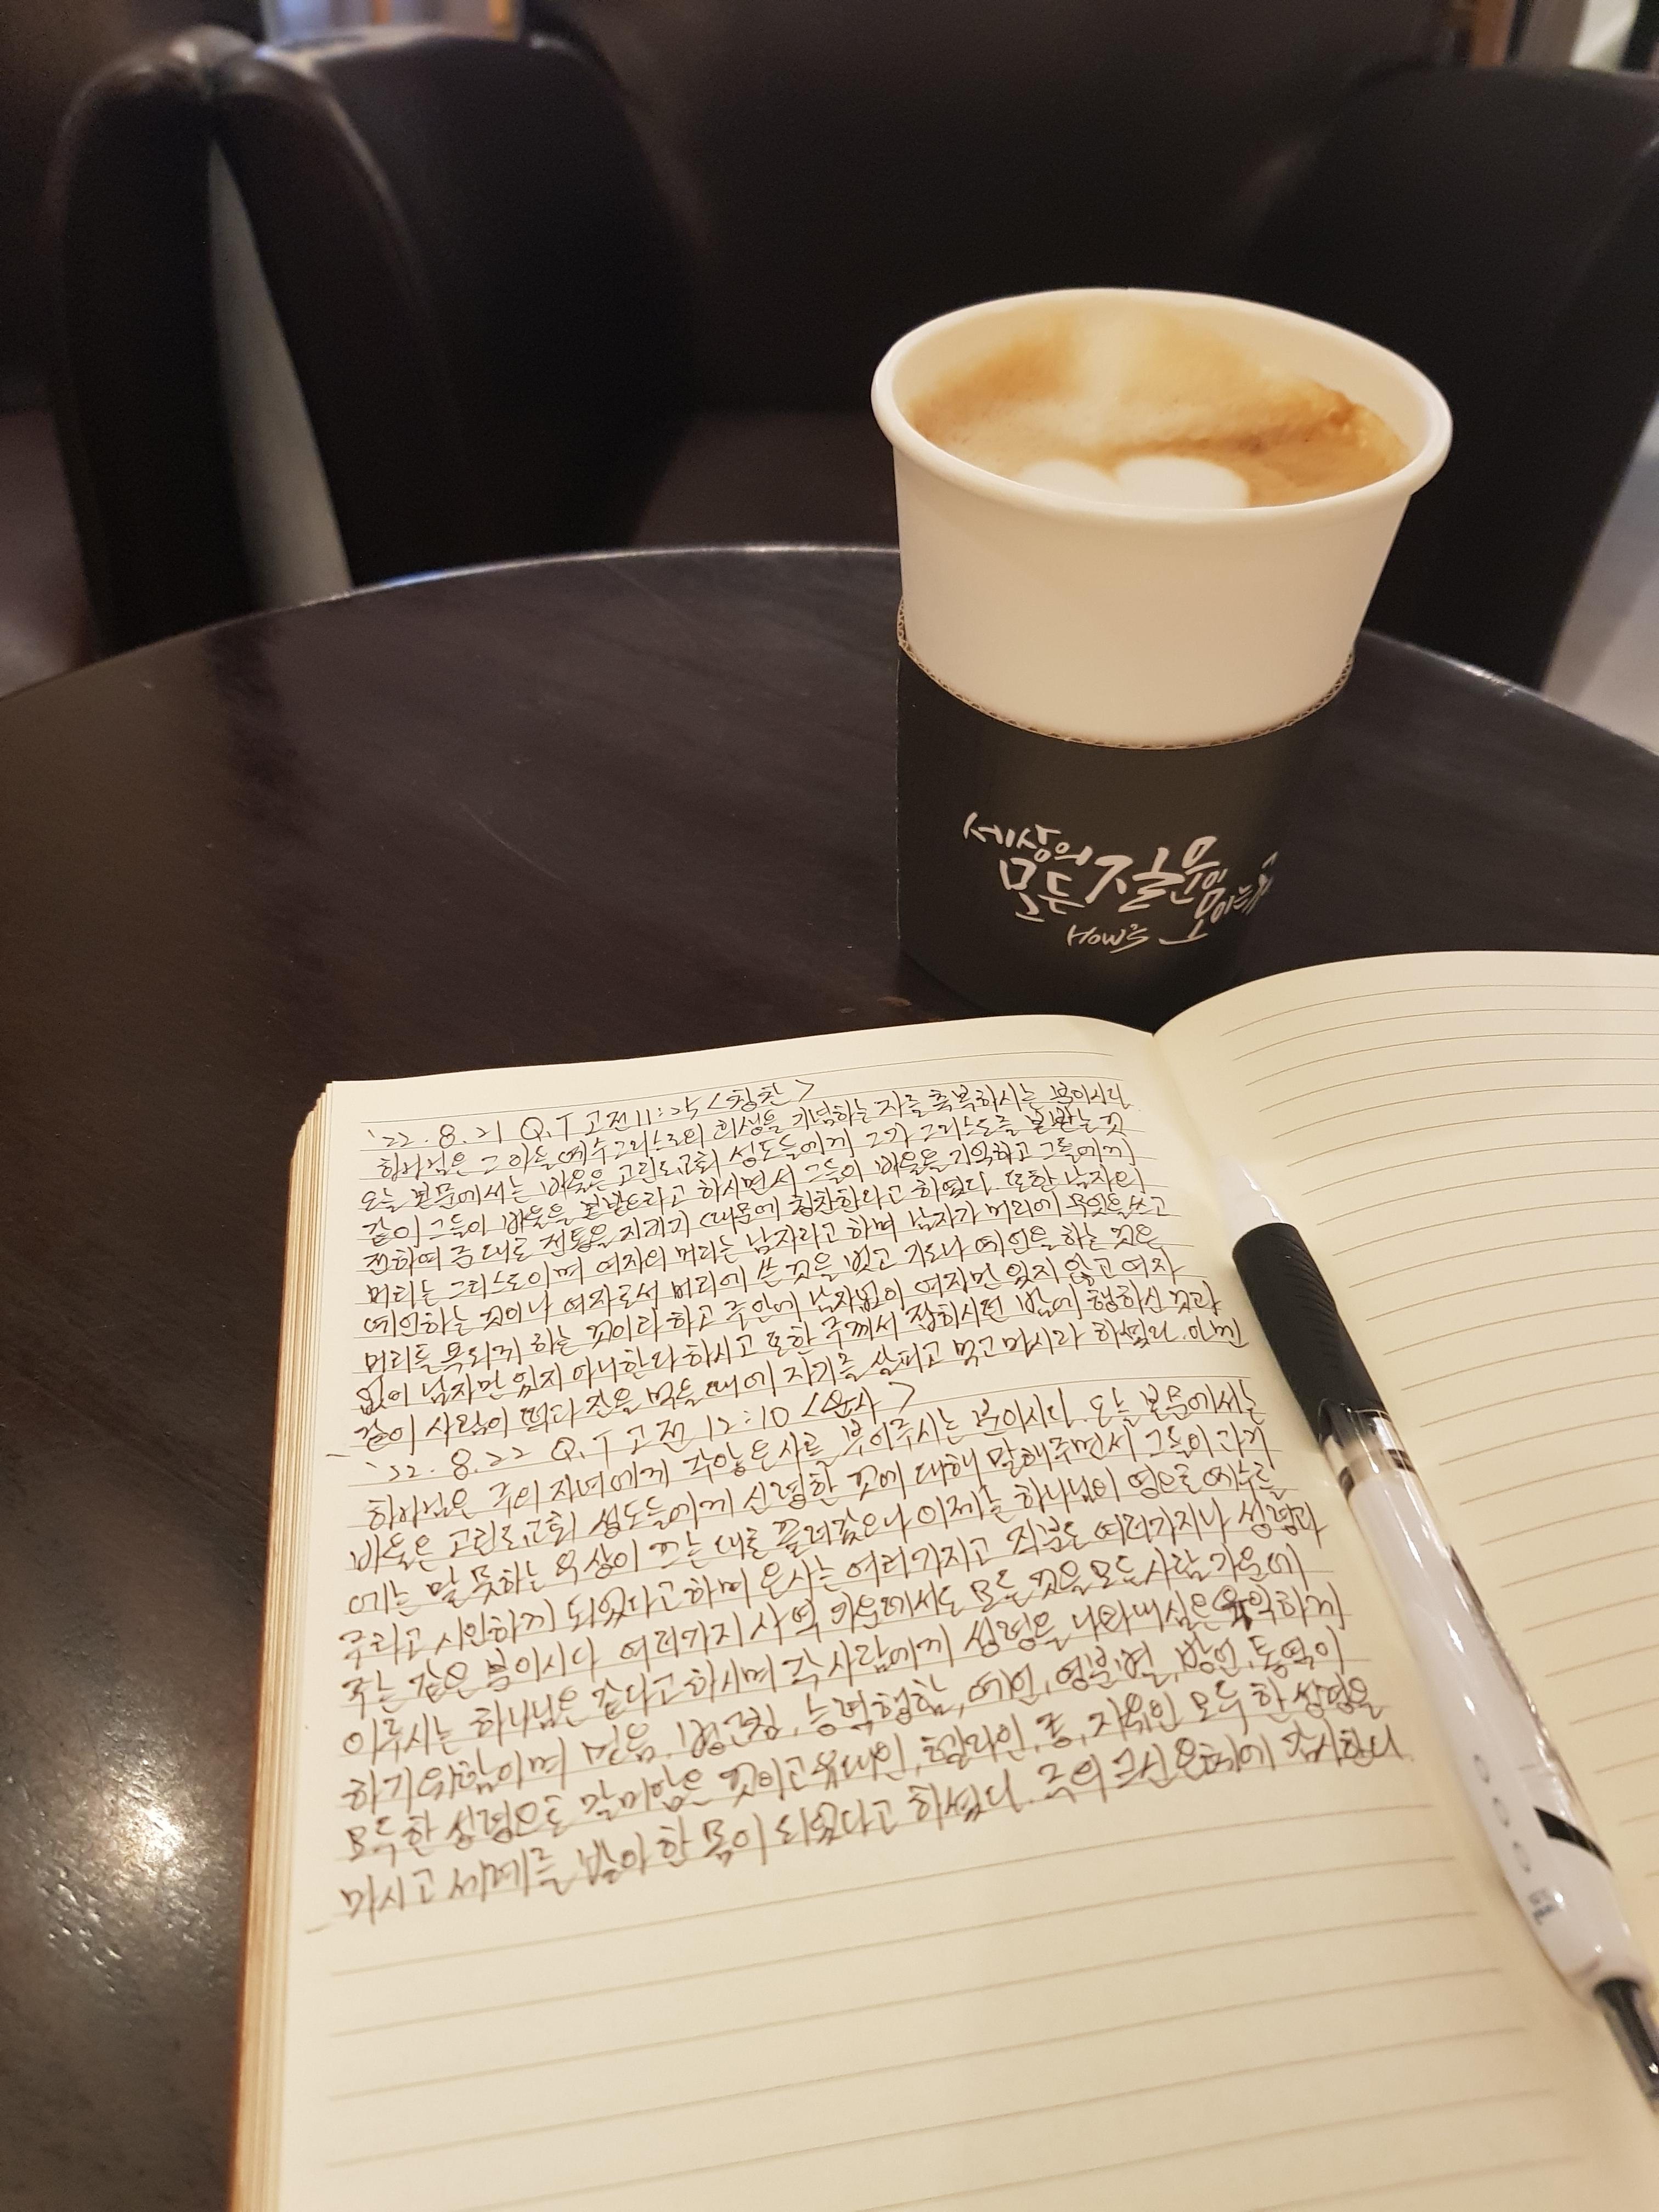 세상의
모든 질문이
모이는
How's
'22. 8. 21 Q.T 고전 11:25 <칭찬>
하나님은 그 아들 예수그리스도의 희생을 기념하는 자를 축복하시는 분이시다.
오늘 본문에서는 바울은 고린도교회 성도들에게 그가 그리스도를 본받는 것
같이 그들이 바울을 본받으라고 하시면서 그들이 바울을 기억하고 그들에게
전하여 준대로 전통을 지키기 때문에 칭찬한다고 하였다. 또한 남자의
머리는 그리스도이며 여자의 머리는 남자라고 하며 남자가 머리에 무엇을 쓰고
예언하는 것이나 여자로서 머리에 쓴 것을 벗고 기도나 예언을 하는 것은
머리를 욕되게 하는 것이라 하고 주안에 남자없이 여자만 있지 않고 여자
없이 남자만 있지 아니한다 하시고 또한 주께서 잡히시던 밤에 행하신 것과
같이 사람이 떡과 잔을 먹을때에 자기를 살피고 먹고 마시라 하셨다. 아멘
'22. 8. 22 Q.T 고전 12:10 <은사>
하나님은 주의 자녀에게 각양은사를 부어주시는 분이시다. 오늘 본문에서는
바울은 고린도교회 성도들에게 신령한 것에 대해 말해주면서 그들이 과거
에는 말 못하는 우상이 끄는 대로 끌려갔으나 이제는 하나님의 영으로 예수를
주라고 시인하게 되었다고 하며 은사는 여러가지고 직분도 여러가지나 성령과
주는 같은 분이시다 여러가지 사역 가운데서도 모든 것을 모든 사람 가운데
이루시는 하나님은 같다고 하시며 각 사람에게 성령을 나타내심은 유익하게
하기 위함이며 믿음, 병고침, 능력행함, 예언, 영분별, 방언, 통역이
모두 한 성령으로 말미암은 것이고 유대인, 헬라인, 종, 자유인 모두 한 성령을
마시고 세례를 받아 한 몸이 되었다고 하셨다. 주의 크신 은혜에 감사한다.